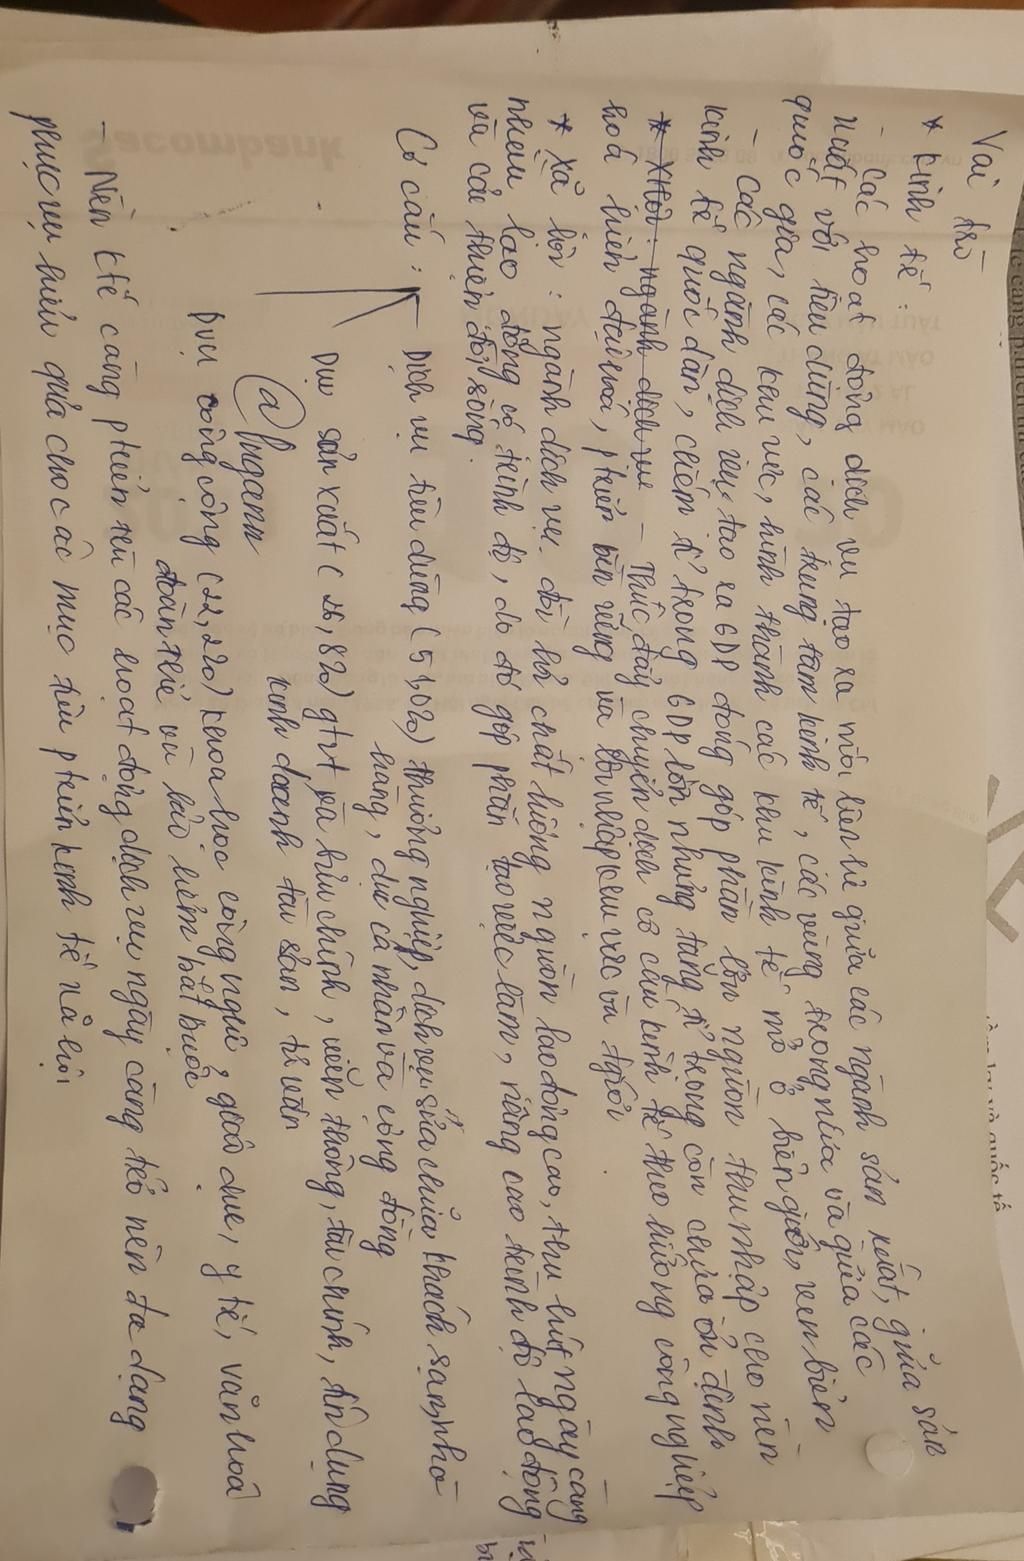 Vai trò
* Kinh tế :
- Các hoạt động dịch vụ tạo ra mối liên hệ giữa các ngành sản xuất, giữa sản
xuất với tiêu dùng, các trung tâm kinh tế, các vùng trong nước và giữa các
quốc gia, các khu vực, hình thành các khu kinh tế mở ở biên giới, ven biển
- Các ngành dịch vụ tạo ra GDP đóng góp phần lớn nguồn thu nhập cho nền
kinh tế quốc dân, chiếm tỉ trong GDP lớn nhưng tăng tỉ trong còn chưa ổn định
* XHội : ngành dịch vụ - Thúc đẩy chuyển dịch cơ cấu kinh tế theo hướng công nghiệp
hoá hiện đại hoá, ptriển bền vững và hội nhập khu vực và tgiới
* Xã hội : ngành dịch vụ đòi hỏi chất lượng nguồn lao động cao, thu hút ngày càng
nhiều lao động có trình độ, do đó góp phần tạo việc làm, nâng cao trình độ lao động
và cải thiện đời sống.
Cơ cấu : Dịch vụ tiêu dùng (51,0%) thương nghiệp, dịch vụ sửa chữa, khách sạn, nhà
hàng, dvu cá nhân và cộng đồng
Dvu sản xuất (26,8%) gtvt và bưu chính, viễn thông, tài chính, tín dụng
kinh doanh tài sản, tư vấn
@
Dvụ công cộng (22,2%) khoa học công nghệ, giáo dục, y tế, văn hoá
đoàn thể và bảo hiểm bắt buộc
- Nền ktế càng ptriển thì các hoạt động dịch vụ ngày càng trở nên đa dạng
phục vụ hiệu quả cho các mục tiêu ptriển kinh tế xã hội
Sacombank